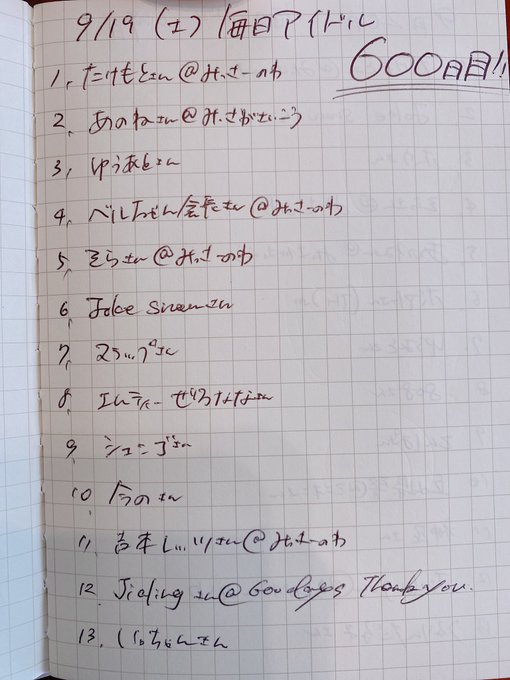 9/19 (土) 毎日アイドル
600日目!!
1, たけもとさん@みっさーのわ
2, あのねさん@みさがさいこう
3, ゆうあとさん
4, ベルおじさん会長さん@みっさーのわ
5, そらさん@みっさーのわ
6, Joke Snowさん
7, さん
8, エムティーぜろななさん
9, シェニゴさん
10, 今のさん
11, 吉本しさん@みっさーのわ
12. Jialing さん@600days Thank you.
13. しろちゃんさん